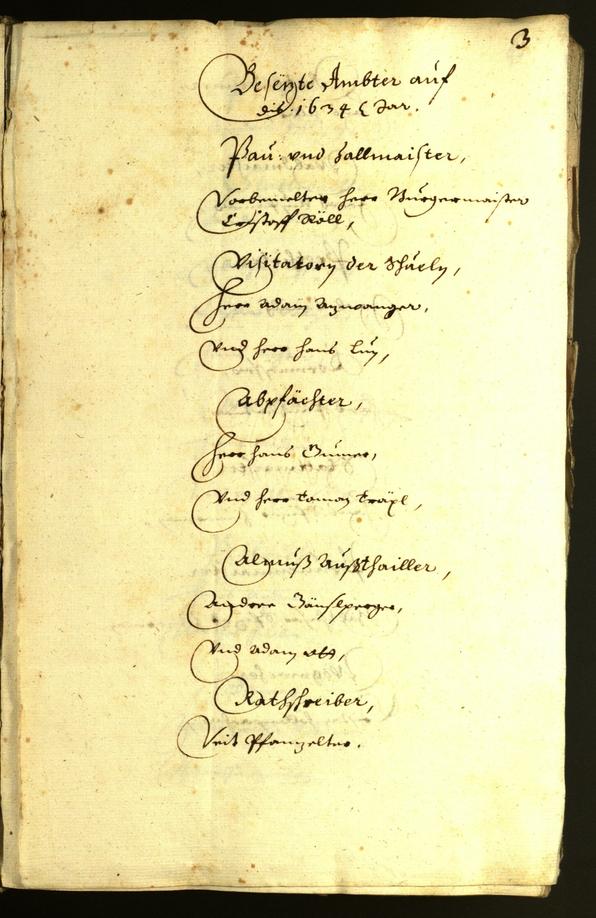 3
Besezte Ämbter auf
diß 1634 Jar.
Pau: vnd Zallmaister,
Vorbemelter herr Burgermaister
Cristoff Röll,
Visitatorn der Schueln,
Herr Adam
vnd herr hans Luz,
Abpfächter,
Herr hans
Vnd herr Toman Träxl,
Almuß Außthailler,
Andree Gänslperger,
Vnd Adam Ott,
Rathschreiber,
Veit Pfanzelter.